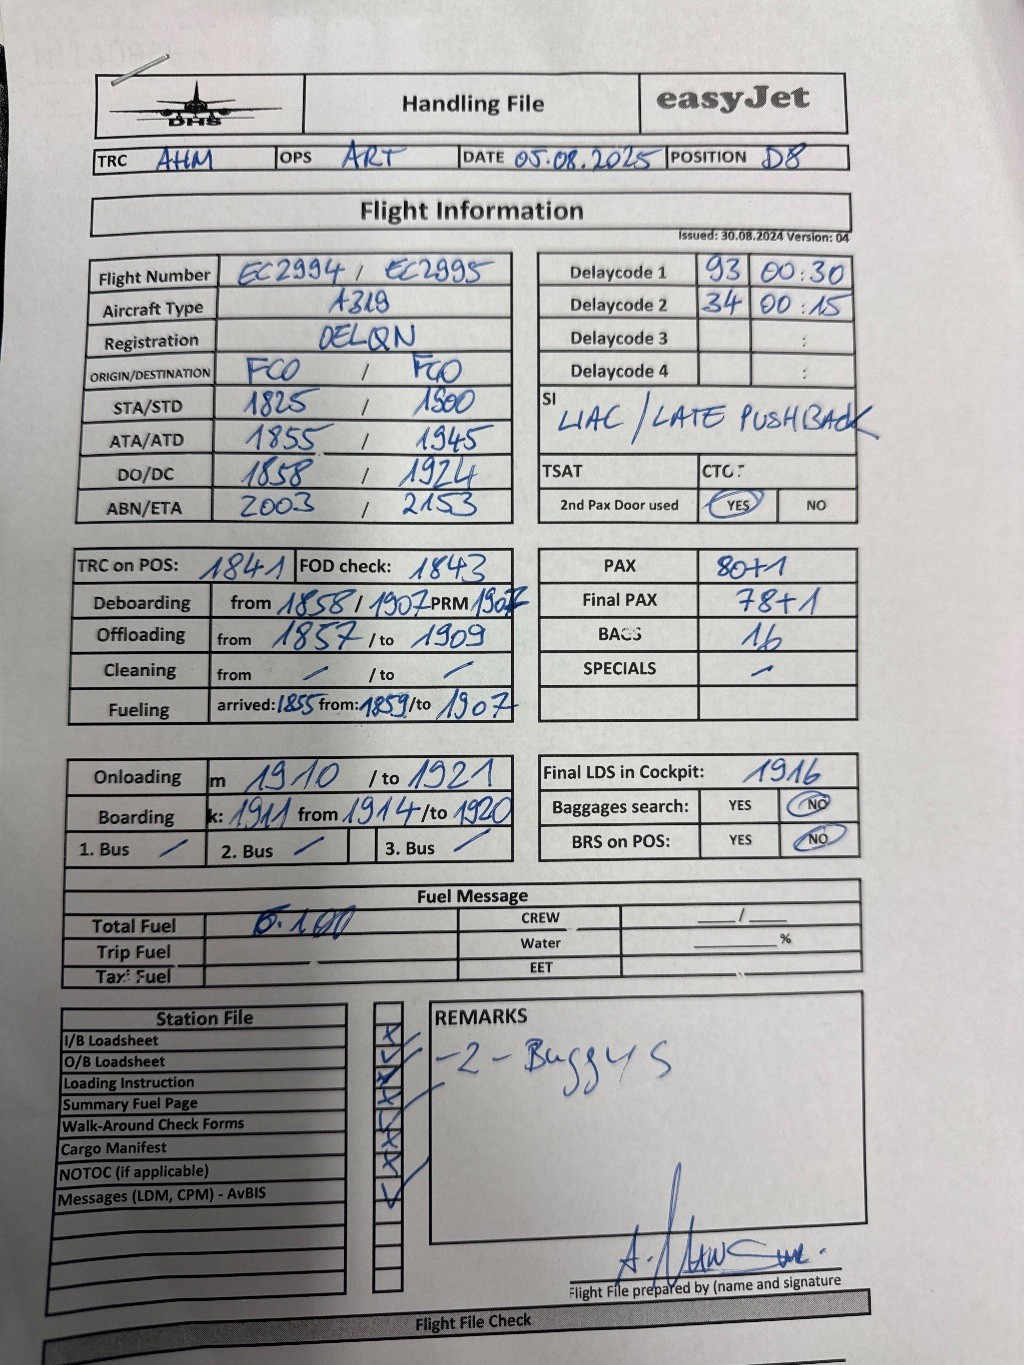 DHS Handling File easyJet
TRC AHM OPS ART DATE 05.08.2025 POSITION D8
Flight Information
Issued: 30.08.2024 Version: 04
Flight Number EC2994 / EC2995
Aircraft Type A319
Registration OELQN
ORIGIN/DESTINATION FCO / FCO
STA/STD 1825 / 1900
ATA/ATD 1855 / 1945
DO/DC 1858 / 1924
ABN/ETA 2003 / 2153
Delaycode 1 93 00:30
Delaycode 2 34 00:15
Delaycode 3 :
Delaycode 4 :
SI LIAC / LATE PUSHBACK
TSAT CTOT
2nd Pax Door used YES NO
TRC on POS: 1841 FOD check: 1843
Deboarding from 1858 / 1907 PRM 1907
Offloading from 1857 / to 1909
Cleaning from – / to –
Fueling arrived: 1855 from: 1859 /to 1907
PAX 80+1
Final PAX 78+1
BAGS 16
SPECIALS –
Onloading m 1910 / to 1921
Boarding k: 1911 from 1914 /to 1920
1. Bus – 2. Bus – 3. Bus –
Final LDS in Cockpit: 1916
Baggages search: YES NO
BRS on POS: YES NO
Fuel Message
Total Fuel 6.100 CREW ___/___
Trip Fuel Water ______%
Taxi Fuel EET
Station File
I/B Loadsheet
O/B Loadsheet
Loading Instruction
Summary Fuel Page
Walk-Around Check Forms
Cargo Manifest
NOTOC (if applicable)
Messages (LDM, CPM) - AvBIS
REMARKS
-2- Buggys
Flight File prepared by (name and signature
Flight File Check